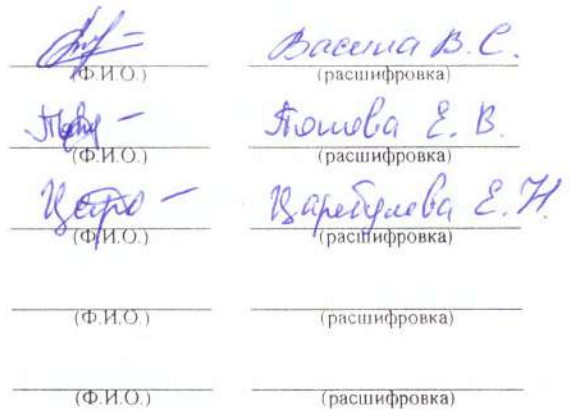 Васина В. С.
(Ф.И.О.) (расшифровка)
Попова Е. В.
(Ф.И.О.) (расшифровка)
Е. Н.
(Ф.И.О.) (расшифровка)
(Ф.И.О.) (расшифровка)
(Ф.И.О.) (расшифровка)